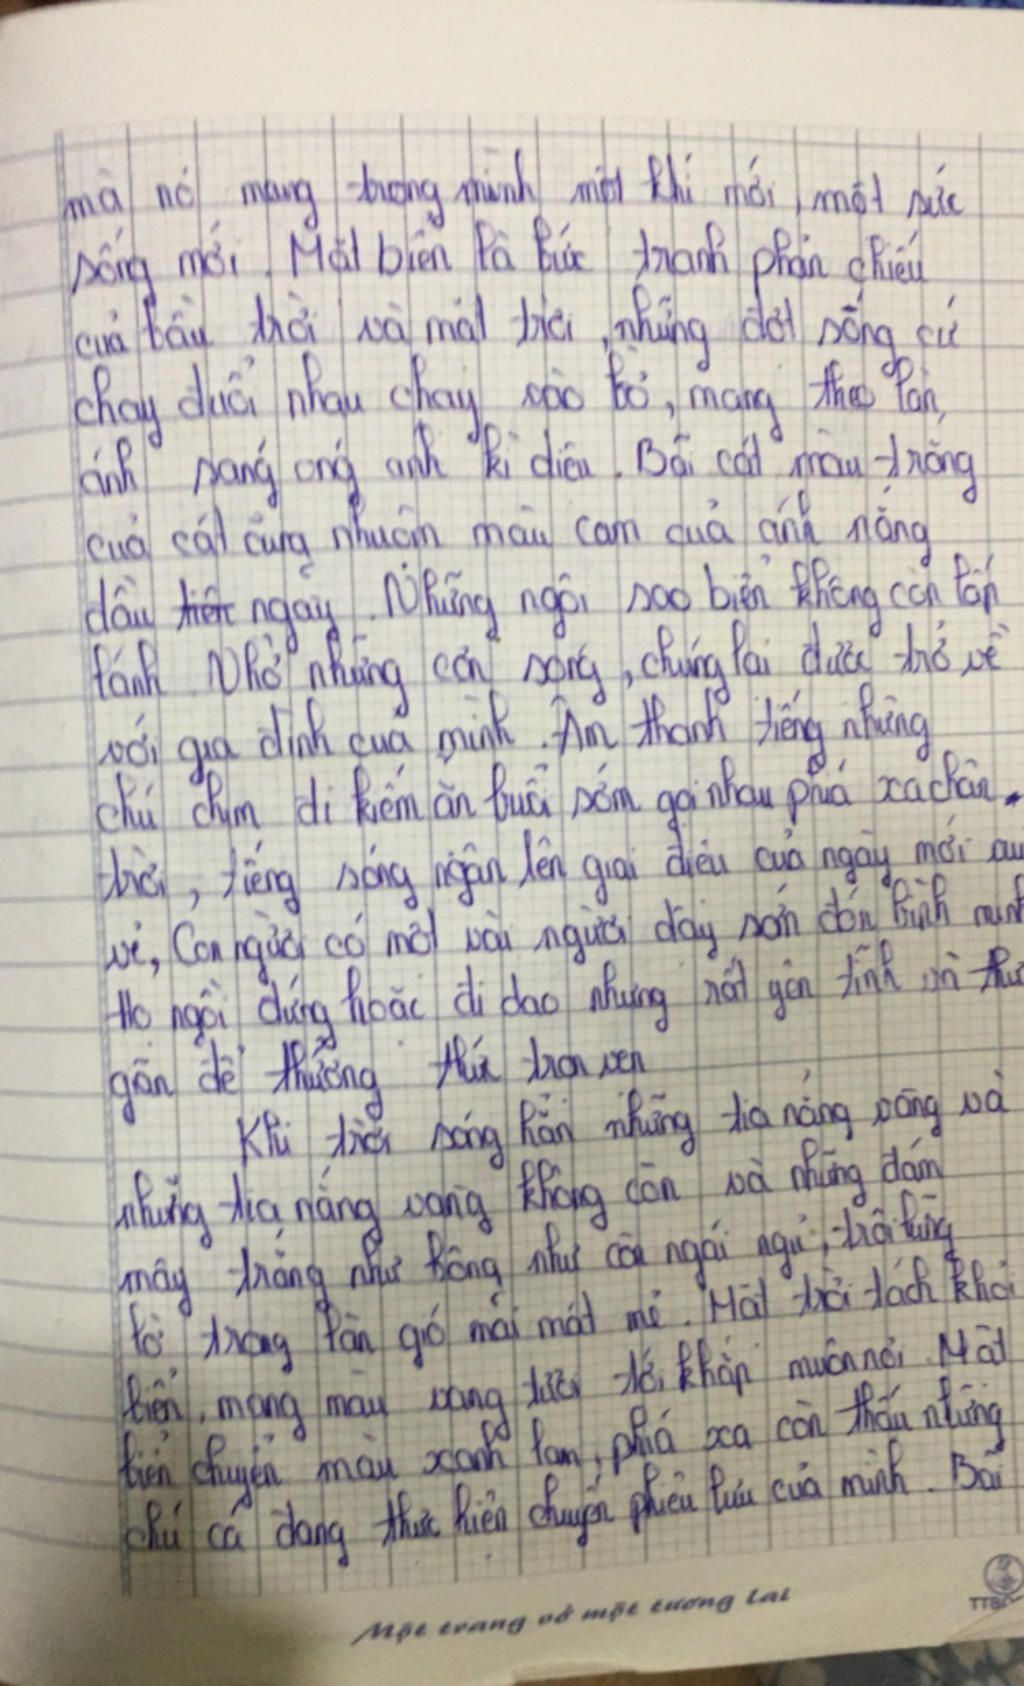 mà nó mang trong mình một khí mới, một sức
sống mới. Mặt biển là bức tranh phản chiếu
của bầu trời và mặt trời, những đợt sống cứ
chạy đuổi nhau chạy vào bờ, mang theo làn
ánh sáng óng ánh kì diệu. Bãi cát màu trắng
của cát cũng nhuốm màu cam của ánh nắng
đầu tiên ngày. Những ngôi sao biển không còn lấp
lánh. Nhờ những cơn sóng, chúng lại được trở về
với gia đình của mình. Âm thanh tiếng những
chú chim đi kiếm ăn buổi sớm gọi nhau phía xa chân
trời, tiếng sóng ngân lên giai điệu của ngày mới
về, Con người có một vài người dậy sớm đón bình minh
Họ ngồi đứng hoặc đi dạo nhưng rất yên tĩnh và thư
giãn để thưởng thức trọn vẹn
Khi trời sáng hẳn những tia nắng vàng và
những tia nắng vàng không còn và những đám
mây trắng như bông như còn ngái ngủ, trôi lững
lờ trong làn gió mai mát mẻ. Mặt trời tách khỏi
biển, mang màu vàng tươi tới khắp muôn nơi. Mặt
biển chuyển màu xanh lam, phía xa còn thấy những
chú cá đang thực hiện chuyến phiêu lưu của mình. Bãi
Một trang vở một tương lai